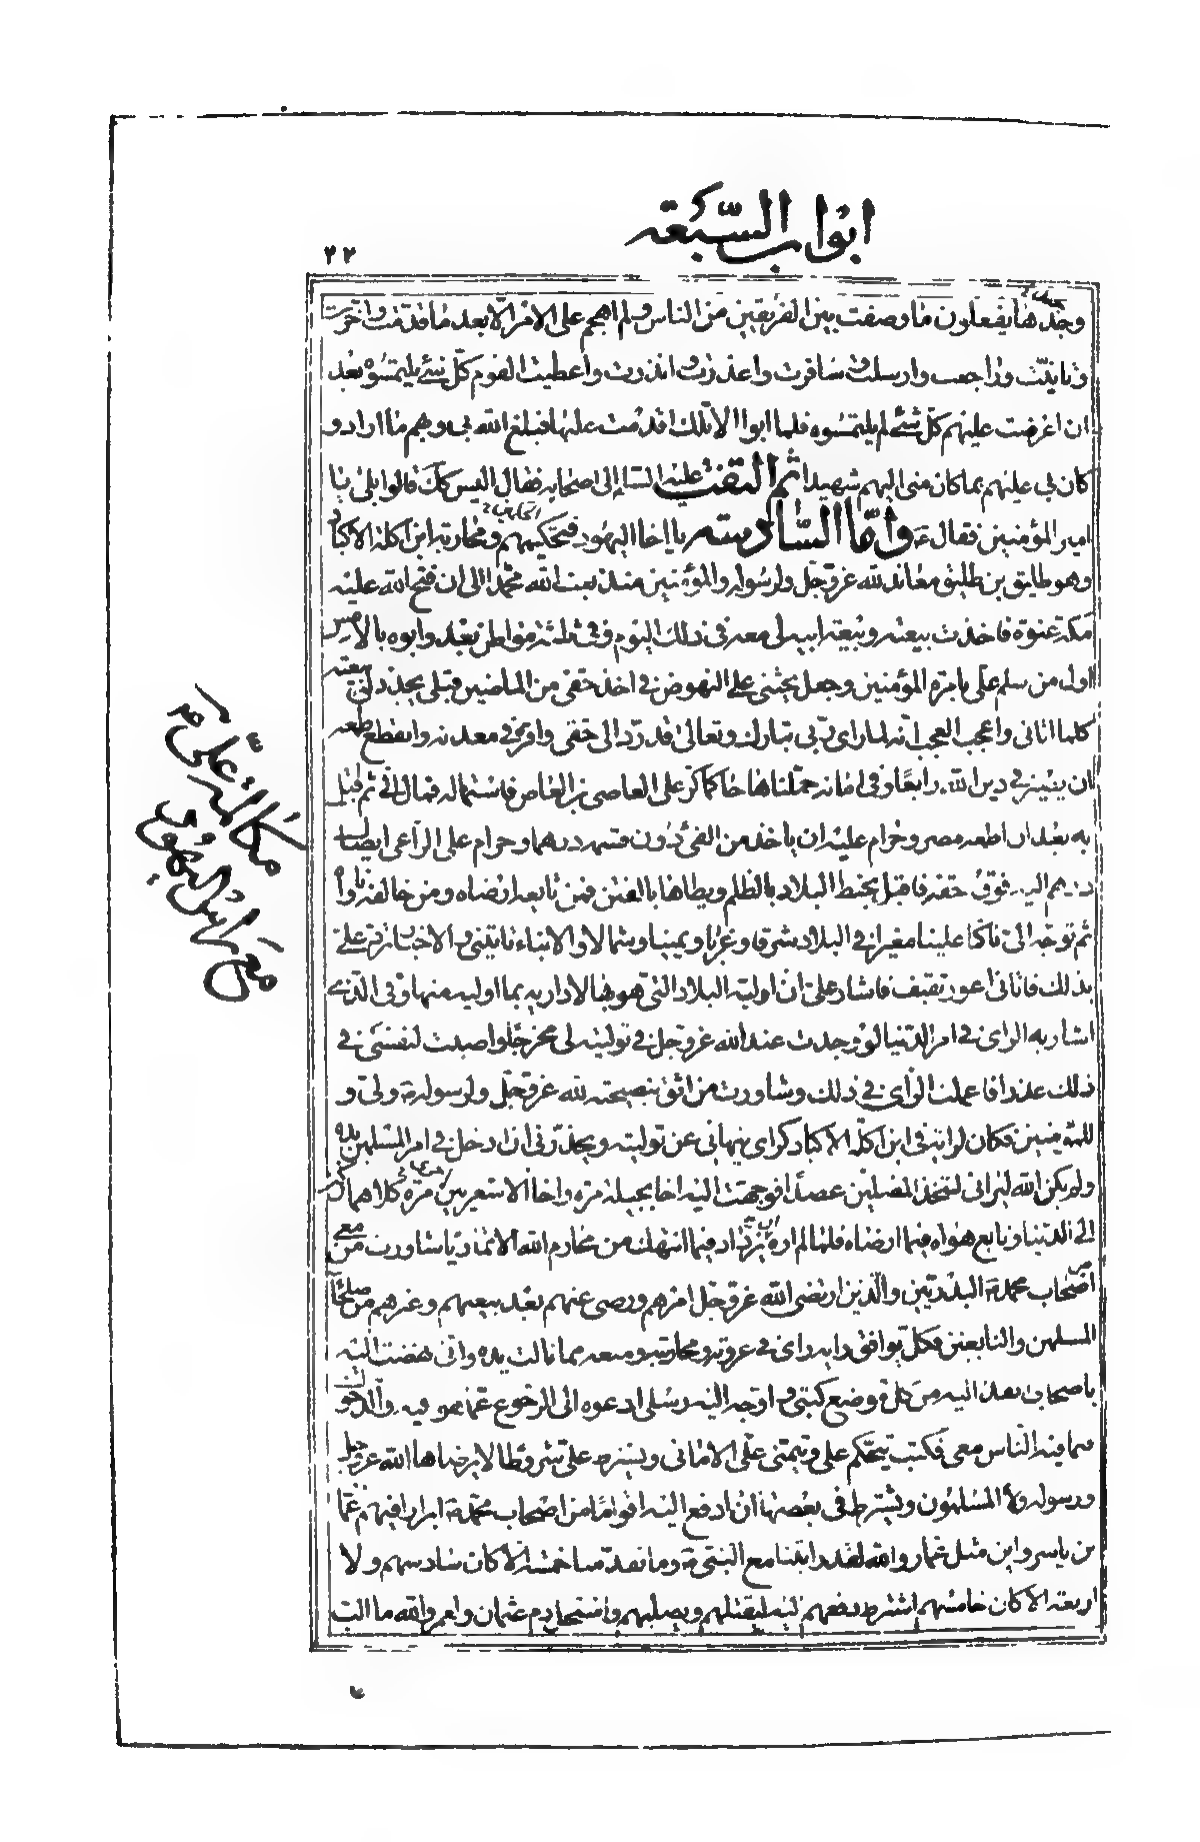 ابواب السبعة
٢٢
وجدهما يفعلون ما وصفت بين الفريقين من الناس ولم اهجم على الامر الا بعد ما قدمت واخرت
وتانيت وراجعت وارسلت وسافرت واعذرت وانذرت واعطيت القوم كل شئ يلتمسوه بعد
ان اعرضت عليهم كل شئ لم يلتمسوه فلما ابوا الا تلك اقدمت عليها فبلغ الله بي وبهم ما اراد و
كان لي عليهم بما كان مني اليهم شهيدا ثم التفت عليه السلم الى اصحابه فقال اليس كك قالوا بلى يا
امير المؤمنين فقال ع واما السادسة يا اخا اليهود فتحكيمهم ومحاربة ابن اكلة الاكباد
وهو طليق بن طليق معاند لله عز وجل ولرسوله والمؤمنين منذ بعث الله محمدا الى ان فتح الله عليه
مكة عنوة فاخذت بيعته وبيعة ابيه لي معه في ذلك اليوم وفي ثلثة مواطن بعد وابوه بالامس
اول من سلم علي بامرة المؤمنين وجعل يحثني على النهوض في اخذ حقي من الماضين قبلي يجدد لي بيعته
كلما اتاني واعجب العجب انه لما راى ربي تبارك وتعالى قد رد الي حقي واقره في معدنه وانقطع طمعه
ان يصير في دين الله رابعا وفي امانة حملناها حاكما كر على العاصي بن العاص فاستماله فمال اليه ثم اقبل
به بعد ان اطعمه مصر وحرام عليه ان ياخذ من الفئ دون قسمه درهما وحرام على الراعي ايصال
درهم اليه فوق حقه فاقبل يخبط البلاد بالظلم ويطاها بالغشم فمن تابعه ارضاه ومن خالفه ناواه
ثم توجه الي ناكثا علينا مغيرا في البلاد شرقا وغربا ويمينا وشمالا والانباء تاتيني والاخبار ترد علي
بذلك فاتاني اعور ثقيف فاشار علي ان اوليه البلاد التي هو بها لاداريه بما اوليه منها وفي الذي
اشار به الراي في امر الدنيا لو وجدت عند الله عز وجل في توليته لي مخرجا واصبت لنفسي في
ذلك عذرا فاعملت الراي في ذلك وشاورت من اثق بنصيحته لله عز وجل ولرسوله ولي و
للمؤمنين فكان رايه في ابن اكلة الاكباد كرايي ينهاني عن توليته ويحذرني ان ادخل في امر المسلمين يده
ولم يكن الله ليراني لتخذ المضلين عضدا فوجهت اليه اخا بجيلة مرة واخا الاشعريين مرة كلاهما ركن
الى الدنيا وتابع هواه فيما ارضاه فلما لم اره يزداد فيما انتهك من محارم الله الا تماديا شاورت من معي
اصحاب محمد البدريين والذين ارتضى الله عز وجل امرهم ورضي عنهم بعد بيعتهم وغيرهم من صلحاء
المسلمين والتابعين فكل يوافق رايه رايي في غزوته ومحاربته ومنعه مما نالت يده واني نهضت اليه
باصحابي انفذ اليه من كل موضع كتبي واوجه اليه رسلي ادعوه الى الرجوع عما هو فيه والدخول
فيما فيه الناس معي فكتب يتحكم علي ويتمنى علي الاماني ويشترط علي شروطا لا يرضاها الله عز وجل
ورسوله ولا المسلمون ويشترط في بعضها ان ادفع اليه اقواما من اصحاب محمد ابرارا فيهم عمار
بن ياسر واين مثل عمار والله لقد رايتنا مع النبي وما تقدمنا خمسة الا كان سادسهم ولا
اربعة الا كان خامسهم اشترط دفعهم اليه ليقتلهم ويصلبهم وانتحل دم عثمان ولعمر والله ما الب
مكالمة علي
مع راس اليهود